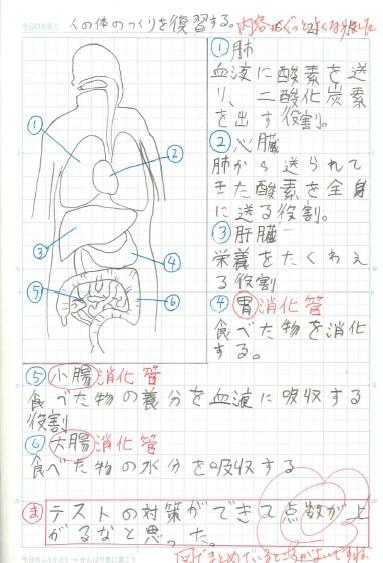 今日のめあて 人の体のつくりを復習する。内容がぐっとよくなりました
①肺
血液に酸素を送
り、二酸化炭素
を出す役割。
②心臓
肺から送られて
きた酸素を全身
に送る役割。
③肝臓
栄養をたくわえ
る役割
④胃 消化管
食べた物を消化
する。
①
②
③
④
⑤
⑥
⑤小腸 消化管
食べた物の養分を血液に吸収する
役割
⑥大腸 消化管
食べた物の水分を吸収する
ま テストの対策ができて点数が上
がるなと思った。
今日のふりかえり→がんばり表に書こう
図でまとめているところがよいですね。